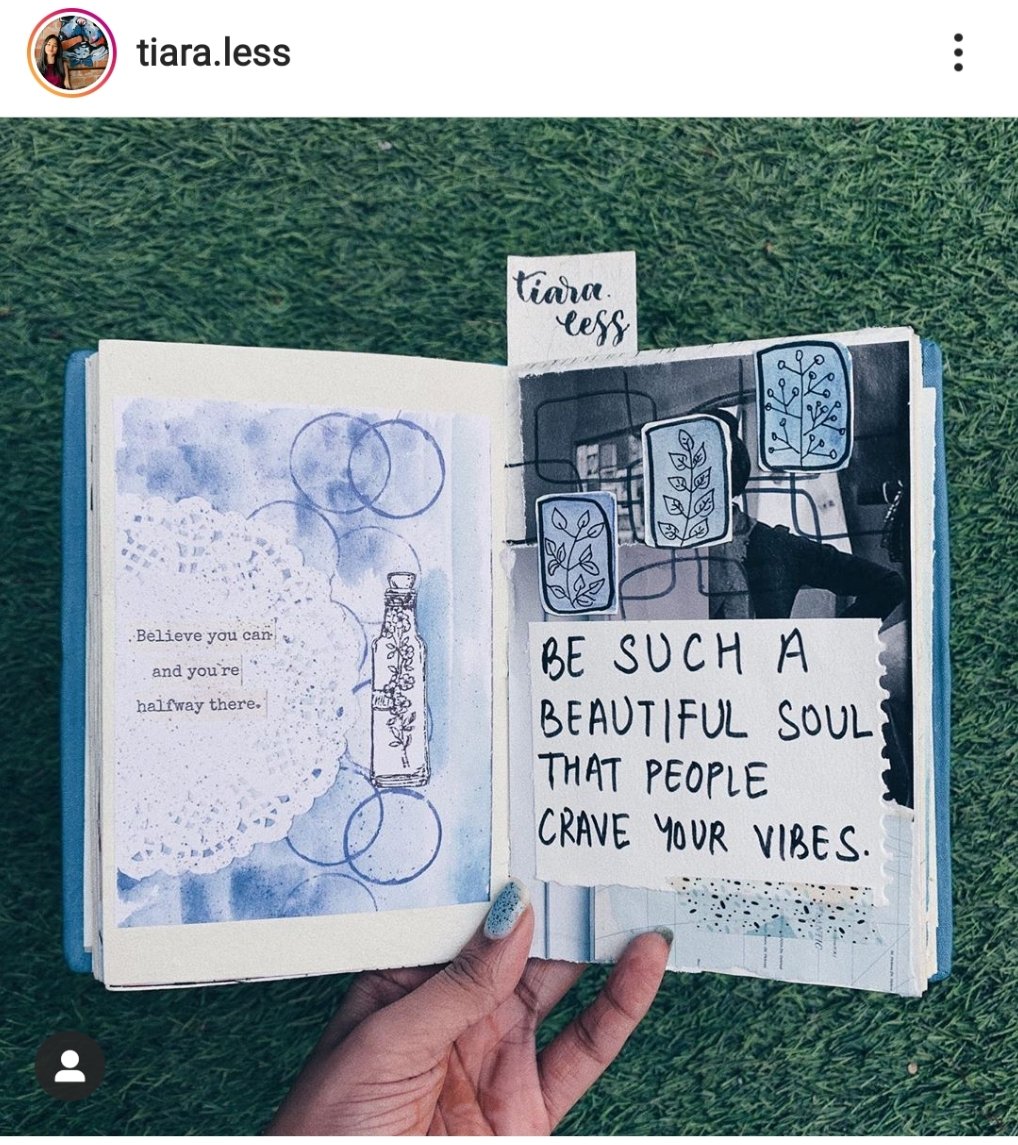 tiara.less
tiara.
less
Believe you can
and you're
halfway there.
BE SUCH A
BEAUTIFUL SOUL
THAT PEOPLE
CRAVE YOUR VIBES.